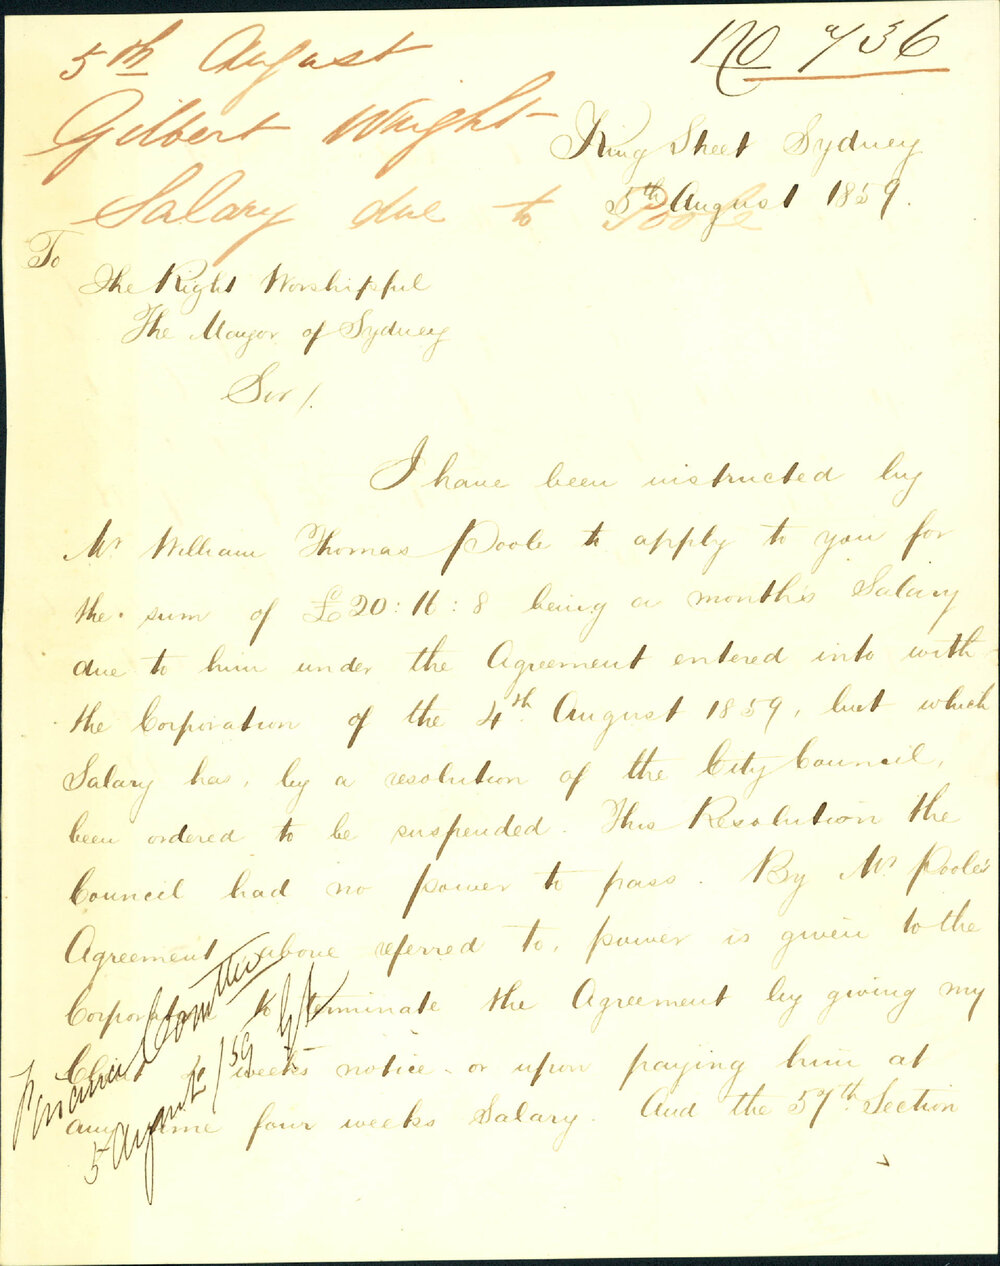 5th August
No 736
Gilbert Wright
Salary due to Poole
King Street Sydney
5th August 1859.
To
The Right Worshipful
The Mayor of Sydney
Sir/.
I have been instructed by
Mr William Thomas Poole to apply to you for
the sum of £20:16:8 being a month's Salary
due to him under the Agreement entered into with
the Corporation of the 4th August 1859, but which
Salary has, by a resolution of the City Council,
been ordered to be suspended. This Resolution the
Council had no power to pass. By Mr Poole's
Agreement above referred to, power is given to the
Corporation to terminate the Agreement by giving my
Client weeks notice or upon paying him at
any time four weeks Salary. And the 57th Section
Finance Committee
5 August /59